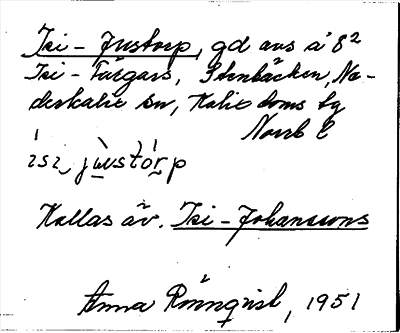 Isi-Justorp, gd avs å 8²
Isi-Färgars, Stenbäcken, Ne-
derkalix sn, Kalix doms lg
Norrb l
isi, justorp
Kallas äv. Isi-Johanssons
Anna Rönnqvist, 1951